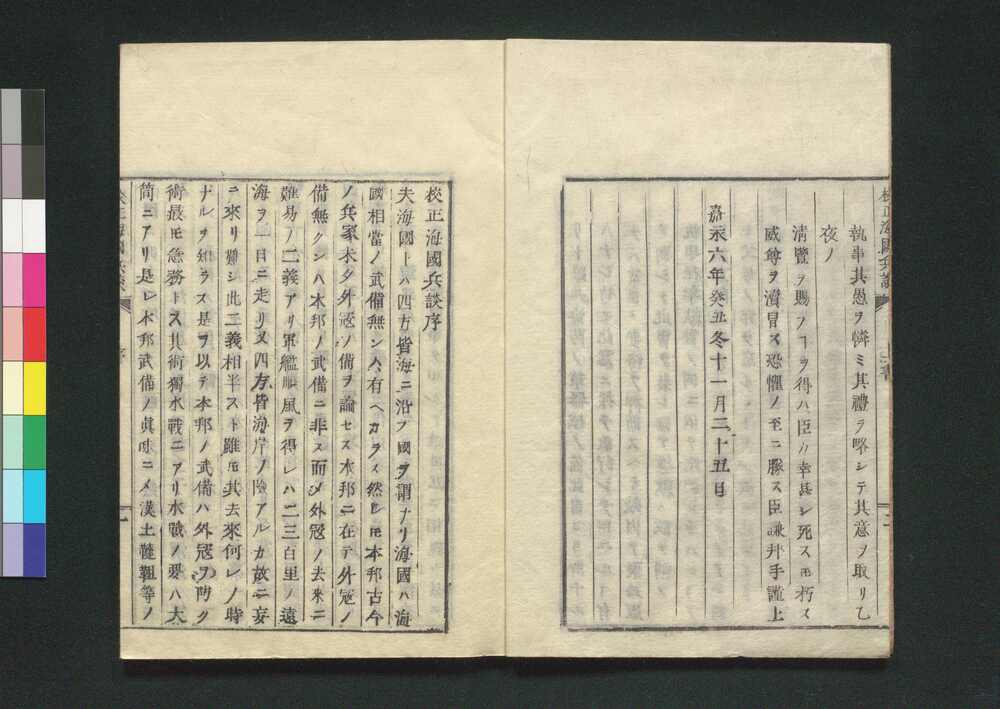 執事其愚ヲ憐ミ其禮ヲ略シテ其意ヲ取リ乙
夜ノ
清覽ヲ賜フヿヲ得ハ臣カ幸甚シ死スㇳモ朽ス
威尊ヲ瀆冒ス恐懼ノ至ニ勝ス臣謙拜手謹上
嘉永六年癸丑冬十一月二十五日
校正海國兵談序
夫海國ㇳハ四方皆海ニ沿フ國ヲ謂ナリ海國ハ海
國相當ノ武備無ンハ有ヘカラス然レㇳモ本邦古今
ノ兵家未タ外冦ノ備ヲ論セス本邦ニ在テ外冦ノ
備無クンハ本邦ノ武備ニ非ス而シメ外冦ノ去來ニ
難易ノ二義アリ軍艦順風ヲ得レハ二三百里ノ遠
海ヲ一日ニ走リ又四方皆海岸ノ險アルカ故ニ妄
ニ來リ難シ此二義相半スㇳ雖モ其去來何レノ時
ナルヲ知ラス是ヲ以テ本邦ノ武備ハ外冦ヲ防ク
術最モ急務ㇳス其術獨水戰ニアリ水戰ノ要ハ大
筒ニアリ是レ本邦武備ノ眞味ニメ漢土韃靼等ノ
校正海國兵談
序
一